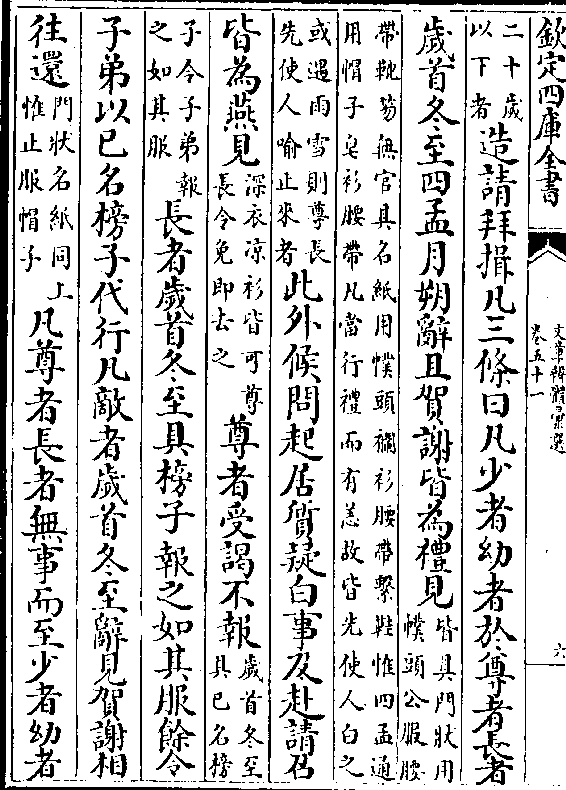 欽定四庫全書
文章辨體彙選
卷五十一
六
二十歲
以下者
造請拜揖凡三條曰凡少者幼者於尊者長者
歲首冬至四孟月朔辭且賀謝皆為禮見
皆具門狀用
幞頭公服腰
帶靴笏無官具名紙用幞頭襴衫腰帶繫鞋惟四孟通
用帽子皂衫腰帶凡當行禮而有恙故皆先使人白之
或遇雨雪則尊長
先使人喻止來者
此外候問起居質疑白事及赴請召
皆為燕見
深衣凉衫皆可尊
長令免即去之
尊者受謁不報
歲首冬至
具已名榜
子令子弟報
之如其服
長者歲首冬至具榜子報之如其服餘令
子弟以已名榜子代行凡敵者歲首冬至辭見賀謝相
往還
門狀名紙同上
惟止服帽子
凡尊者長者無事而至少者幼者